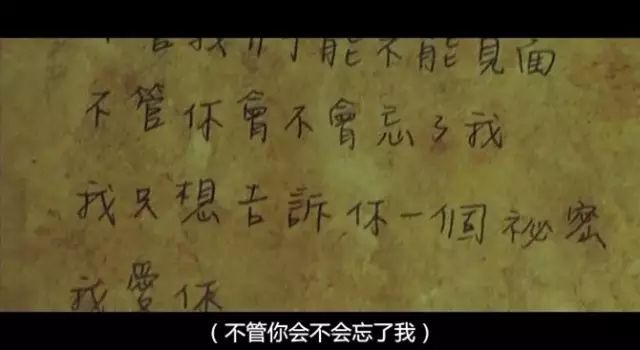 不管我們能不能見面
不管你會不會忘了我
我只想告訴你一個祕密
我愛你
（不管你会不会忘了我）